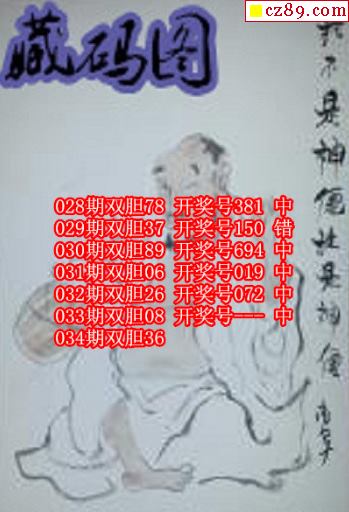 cz89.com
藏码图
我不是神仙谁是神仙
028期双胆78 开奖号381 中
029期双胆37 开奖号150 错
030期双胆89 开奖号694 中
031期双胆06 开奖号019 中
032期双胆26 开奖号072 中
033期双胆08 开奖号--- 中
034期双胆36